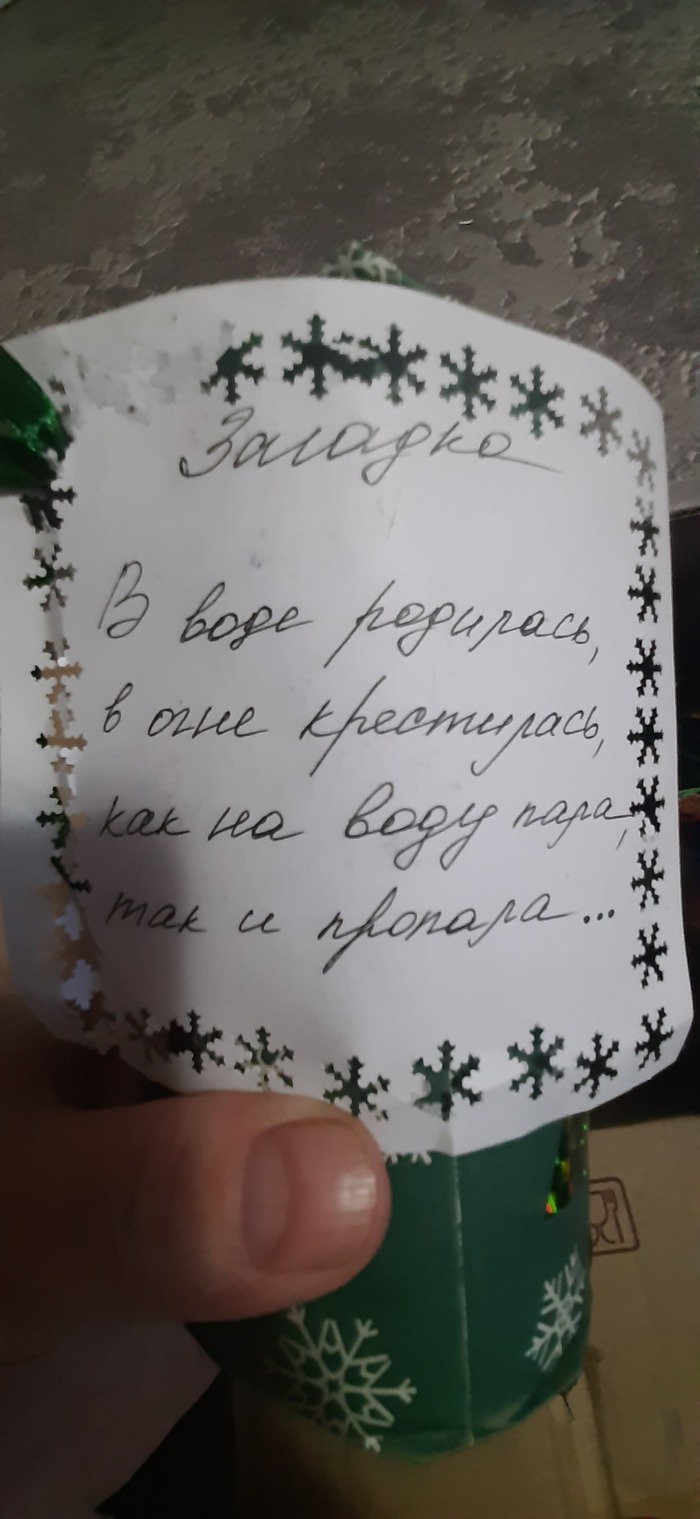 Загадка
В воде родилась,
в огне крестилась,
как на воду пала,
так и пропала...